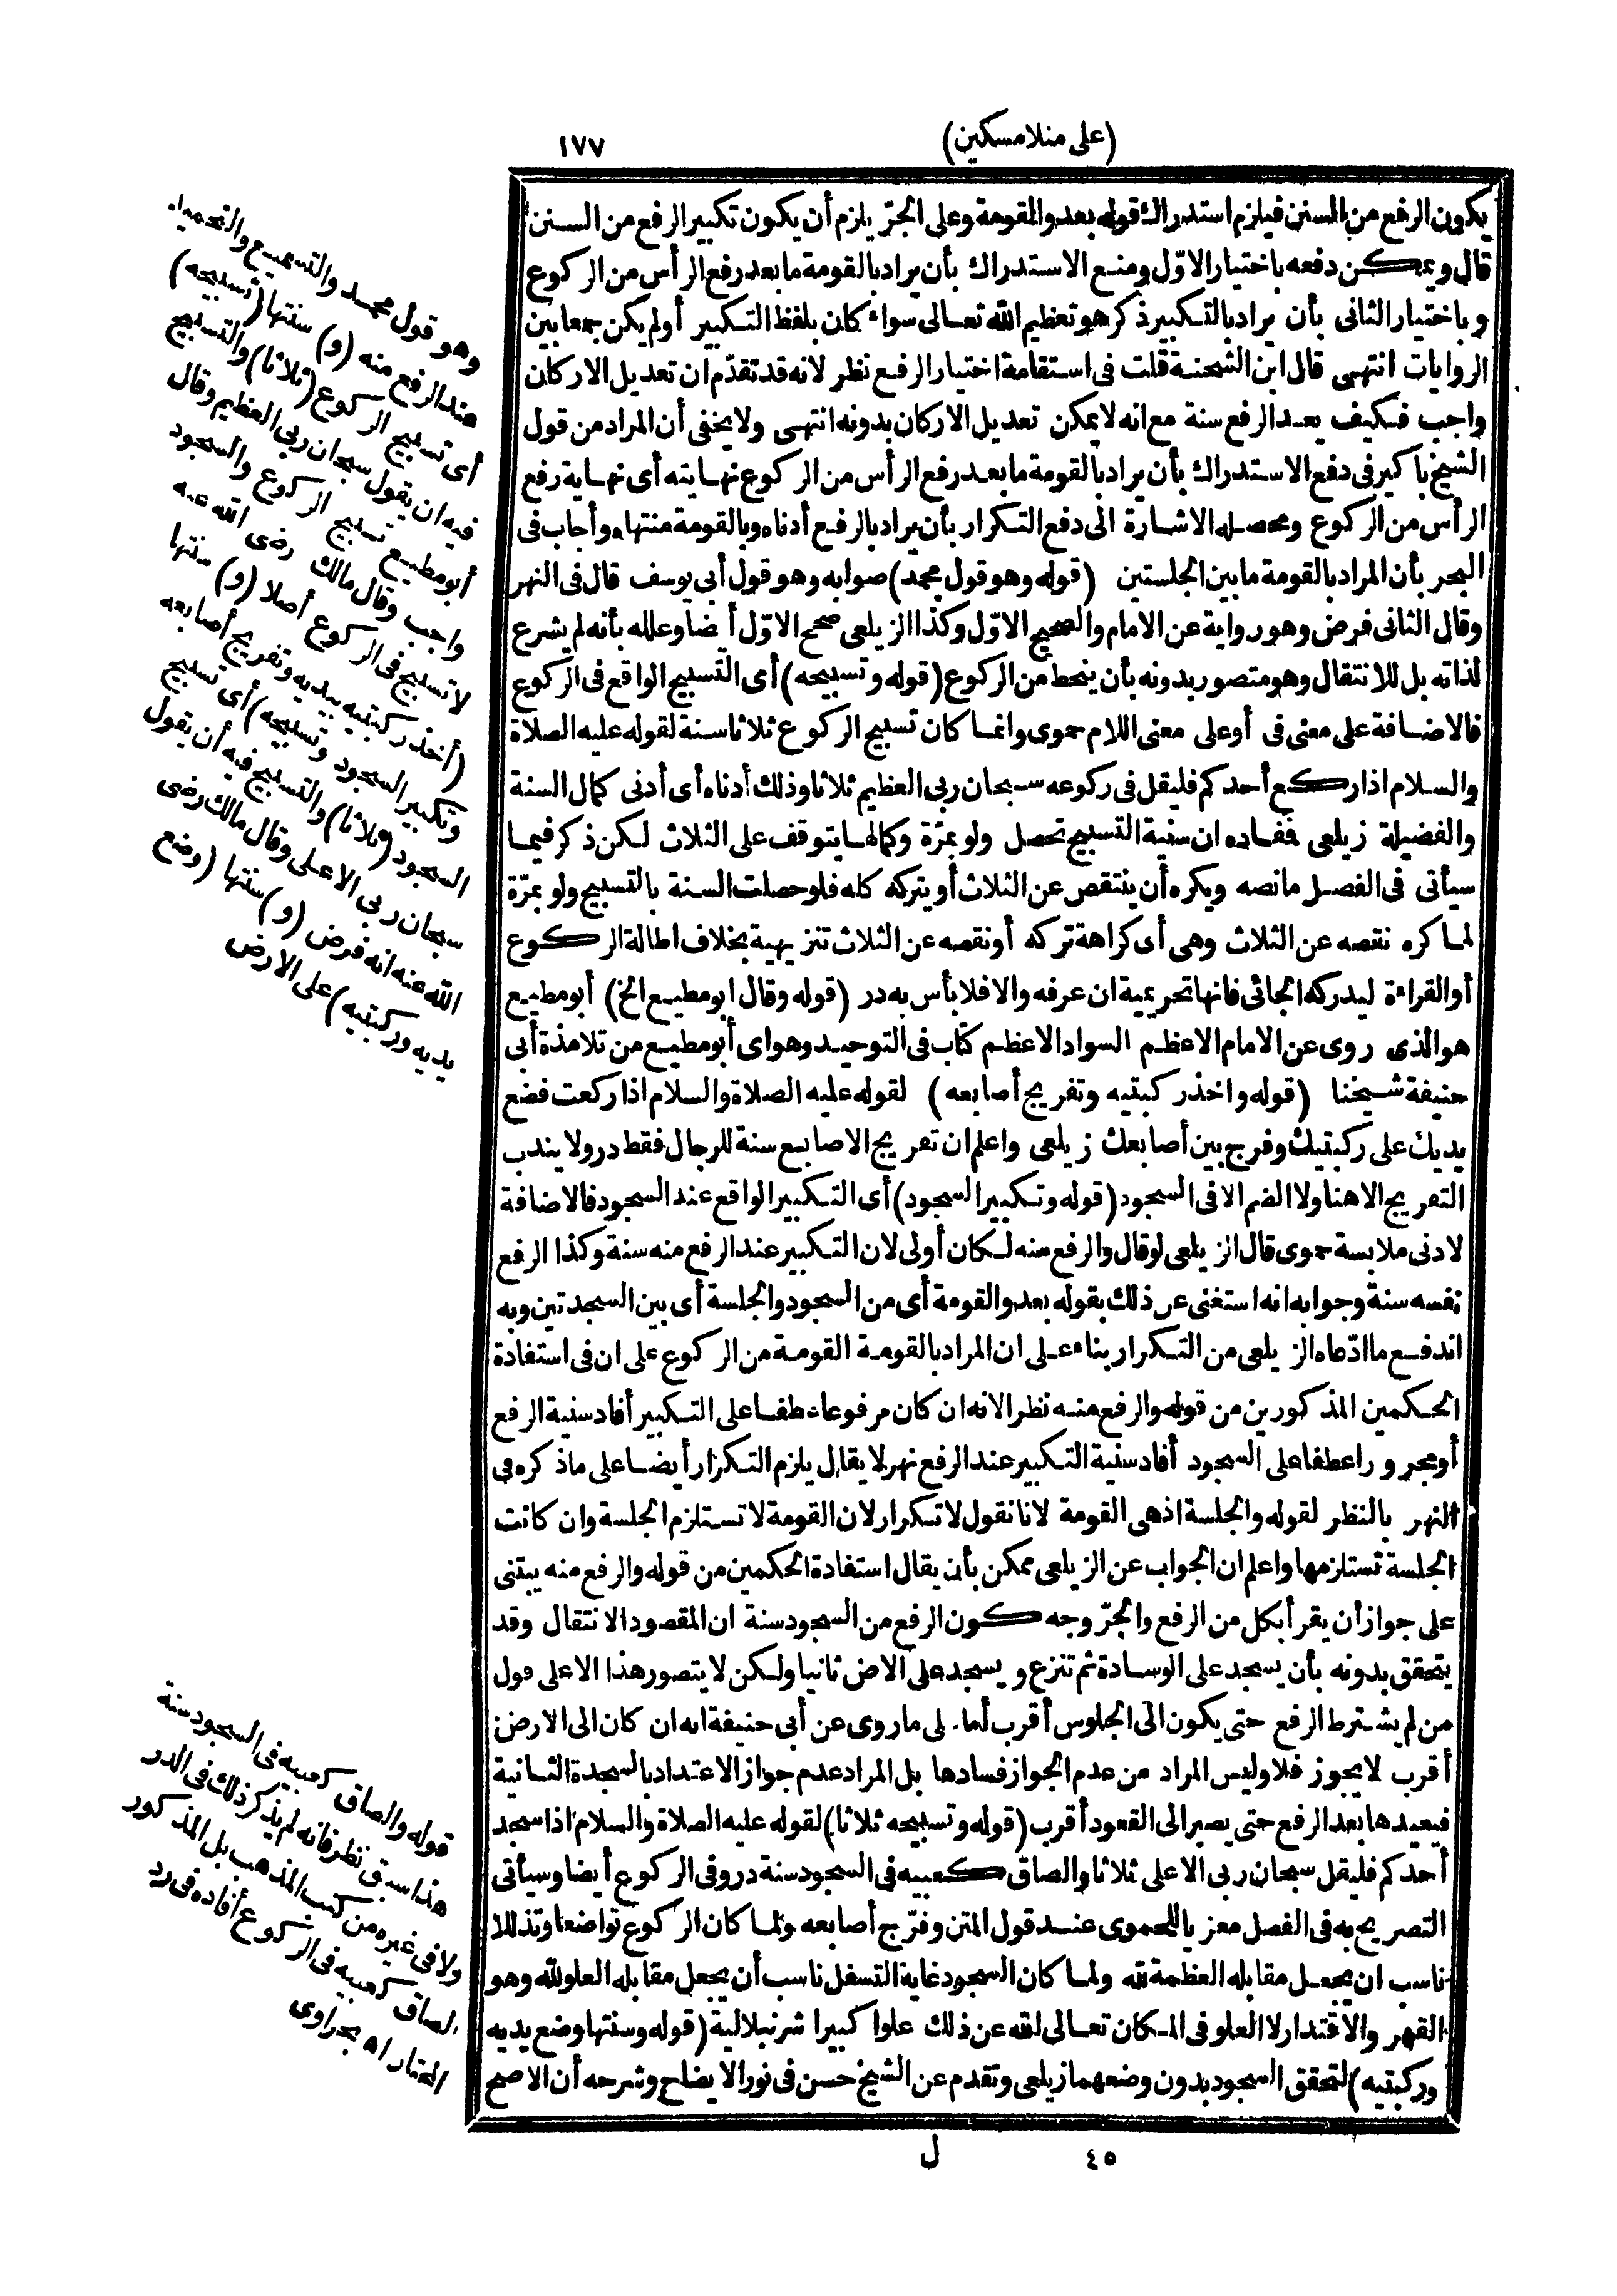 (على منلا مسكين) ١٧٧
يكون الرفع من السنن فيلزم استدراك قوله بعد والقومة وعلى الجرّ يلزم أن يكون تكبير الرفع من السنن
قال ويمكن دفعه باختيار الاوّل ومنع الاستدراك بأن يراد بالقومة ما بعد رفع الرأس من الركوع
وباختيار الثانى بأن يراد بالتكبير ذكر هو تعظيم الله تعالى سواء كان بلفظ التكبير أو لم يكن جمعا بين
الروايات انتهى قال ابن الشحنة قلت فى استقامة اختيار الرفع نظر لانه قد تقدّم ان تعديل الاركان
واجب فكيف يعد الرفع سنة مع انه لا يمكن تعديل الاركان بدونه انتهى ولا يخفى أن المراد من قول
الشيخ باكير فى دفع الاستدراك بأن يراد بالقومة ما بعد رفع الرأس من الركوع نهايته أى نهاية رفع
الرأس من الركوع ومحصله الاشارة الى دفع التكرار بأن يراد بالرفع أدناه وبالقومة منتهاه وأجاب فى
البحر بأن المراد بالقومة ما بين الجلستين (قوله وهو قول محمد) صوابه وهو قول أبى يوسف قال فى النهر
وقال الثانى فرض وهو رواية عن الامام والصحيح الاوّل وكذا الزيلعى صحح الاوّل أيضا وعلله بأنه لم يشرع
لذاته بل للانتقال وهو متصور بدونه بأن ينحط من الركوع (قوله وتسبيحه) أى التسبيح الواقع فى الركوع
فالاضافة على معنى فى أو على معنى اللام حموى وانما كان تسبيح الركوع ثلاثا سنة لقوله عليه الصلاة
والسلام اذا ركع أحدكم فليقل فى ركوعه سبحان ربى العظيم ثلاثا وذلك أدناه أى أدنى كمال السنة
والفضيلة زيلعى ففاده ان سنية التسبيح تحصل ولو بمرّة وكمالها يتوقف على الثلاث لكن ذكر فيما
سيأتى فى الفصل ما نصه ويكره أن ينتقص عن الثلاث أو يتركه كله فلو حصلت السنة بالتسبيح ولو بمرّة
لما كره نقصه عن الثلاث وهى أى كراهة تركه أو نقصه عن الثلاث تنزيهية بخلاف اطالة الركوع
أو القراءة ليدركه الجائى فانها تحريمية ان عرفه والا فلا بأس به در (قوله وقال ابو مطيع الخ) أبو مطيع
هو الذى روى عن الامام الاعظم السواد الاعظم كتاب فى التوحيد وهو اى أبو مطيع من تلامذة أبى
حنيفة شيخنا (قوله واخذ ركبتيه وتفريج أصابعه) لقوله عليه الصلاة والسلام اذا ركعت فضع
يديك على ركبتيك وفرج بين أصابعك زيلعى واعلم ان تفريج الاصابع سنة للرجال فقط در ولا يندب
التفريج الا هنا ولا الضم الا فى السجود (قوله وتكبير السجود) أى التكبير الواقع عند السجود فالاضافة
لادنى ملابسة حموى قال الزيلعى لو قال والرفع منه لكان أولى لان التكبير عند الرفع منه سنة وكذا الرفع
نفسه سنة وجوابه انه استغنى عن ذلك بقوله بعد والقومة أى من السجود والجلسة أى بين السجدتين وبه
اندفع ما ادّعاه الزيلعى من التكرار بناء على ان المراد بالقومة القومة من الركوع على ان فى استفادة
الحكمين المذكورين من قوله والرفع منه نظر الانه ان كان مرفوعا عطفا على التكبير أفاد سنية الرفع
أو مجرورا عطفا على السجود أفاد سنية التكبير عند الرفع نهر لا يقال يلزم التكرار أيضا على ما ذكره فى
النهر بالنظر لقوله والجلسة اذ هى القومة لانا نقول لا تكرار لان القومة لا تستلزم الجلسة وان كانت
الجلسة تستلزمها واعلم ان الجواب عن الزيلعى ممكن بأن يقال استفادة الحكمين من قوله والرفع منه يبتنى
على جواز أن يقرأ بكل من الرفع والجرّ وجه كون الرفع من السجود سنة ان المقصود الانتقال وقد
يتحقق بدونه بأن يسجد على الوسادة ثم تنزع ويسجد على الارض ثانيا ولكن لا يتصور هذا الا على قول
من لم يشترط الرفع حتى يكون الى الجلوس أقرب أما على ما روى عن أبى حنيفة انه ان كان الى الارض
أقرب لا يجوز فلا وليس المراد من عدم الجواز فسادها بل المراد عدم جواز الاعتداد بالسجدة الثانية
فيعيدها بعد الرفع حتى يصير الى القعود أقرب (قوله وتسبيحه ثلاثا) لقوله عليه الصلاة والسلام اذا سجد
أحدكم فليقل سبحان ربى الاعلى ثلاثا والصاق كعبيه فى السجود سنة در وفى الركوع أيضا وسيأتى
التصريح به فى الفصل معزيا للحموى عند قول المتن وفرّج أصابعه ولما كان الركوع تواضعا وتذللا
ناسب ان يجعل مقابله العظمة لله ولما كان السجود غاية التسفل ناسب أن يجعل مقابله العلو لله وهو
القهر والاقتدار لا العلو فى المكان تعالى الله عن ذلك علوا كبيرا شرنبلالية (قوله وسنتها وضع يديه
وركبتيه) لتحقق السجود بدون وضعهما زيلعى وتقدم عن الشيخ حسن فى نور الايضاح وشرحه أن الاصح
وهو قول محمد والتسميع والتحميد
عند الرفع منه (و) سنتها (تسبيحه)
أى تسبيح الركوع (ثلاثا) والتسبيح
فيه ان يقول سبحان ربى العظيم وقال
أبو مطيع تسبيح الركوع والسجود
واجب وقال مالك رضى الله عنه
لا تسبيح فى الركوع أصلا (و) سنتها
(أخذ ركبتيه بيديه وتفريج أصابعه
وتكبير السجود وتسبيحه) أى تسبيح
السجود (ثلاثا) والتسبيح فيه أن يقول
سبحان ربى الاعلى وقال مالك رضى
الله عنه انه فرض (و) سنتها (وضع
يديه وركبتيه) على الارض
قوله والصاق كعبيه فى السجود سنة
هذا سبق نظر فانه لم يذكر ذلك فى الدر
ولا فى غيره من كتب المذهب بل المذكور
الصاق كعبيه فى الركوع أفاده فى رد
المحتار اه بحراوى
٤٥ ل